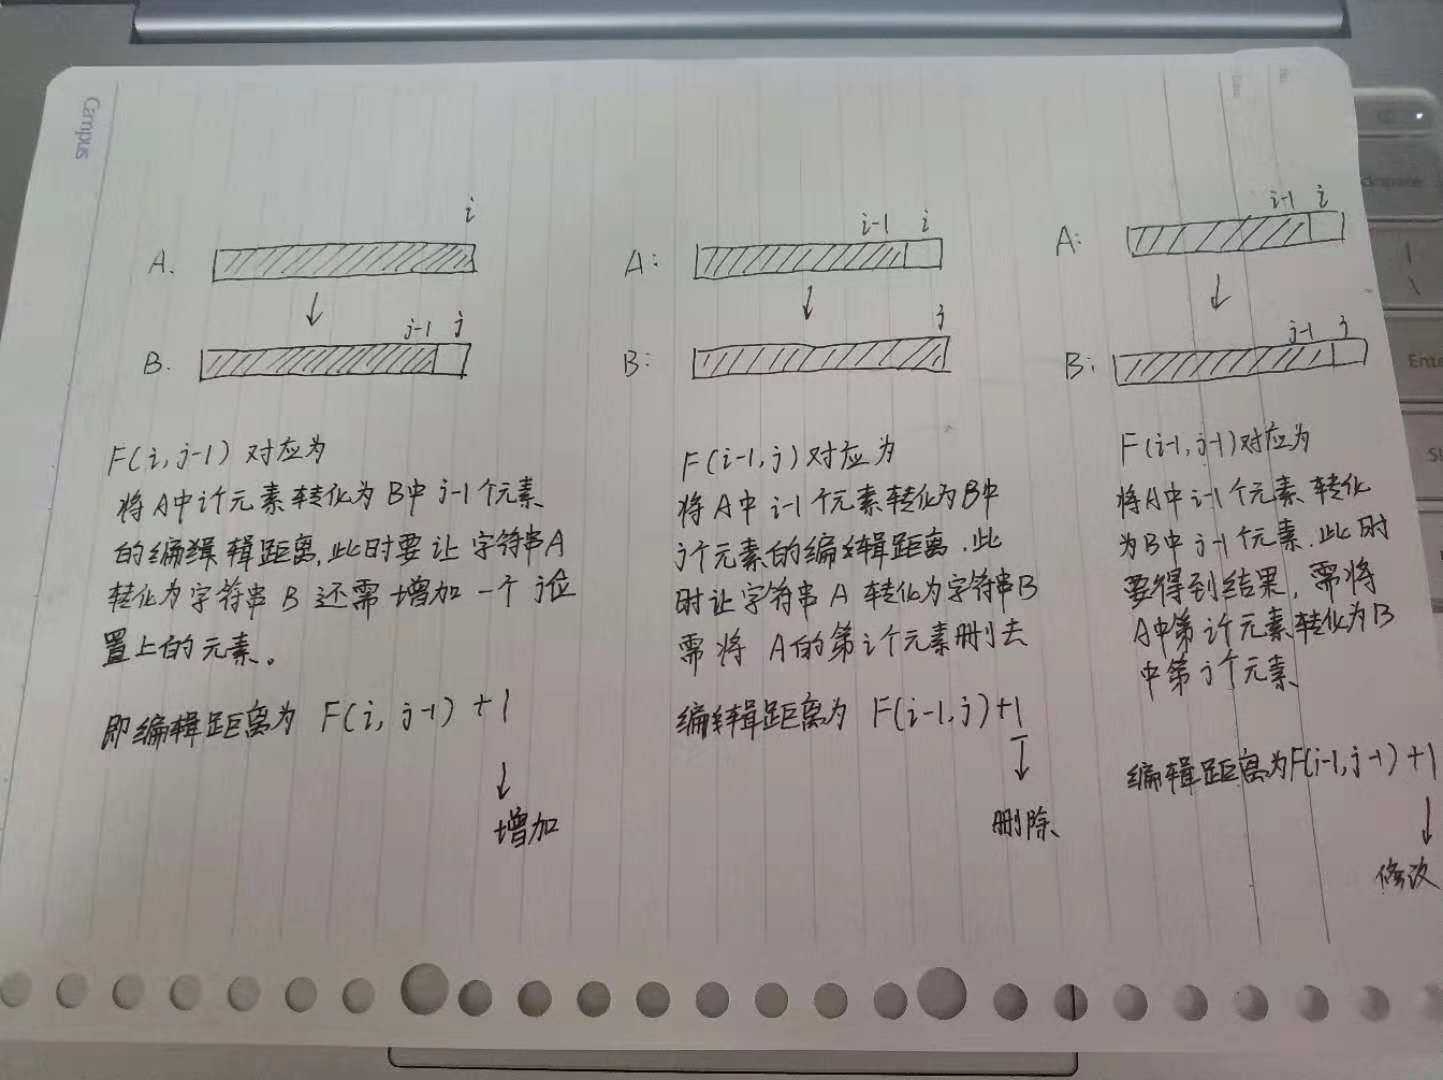 Campus
i
A.
j-1 j
B.
F(i,j-1) 对应为
将A中i个元素转化为B中j-1个元素
的编辑距离,此时要让字符串A
转化为字符串B还需增加一个j位
置上的元素。
即编辑距离为 F(i,j-1)+1
增加
i-1 i
A:
j
B:
F(i-1,j)对应为
将A中i-1个元素转化为B中
j个元素的编辑距离.此
时让字符串A转化为字符串B
需将A的第i个元素删去
编辑距离为 F(i-1,j)+1
删除
i-1 i
A:
j-1 j
B:
F(i-1,j-1)对应为
将A中i-1个元素转化
为B中j-1个元素.此时
要得到结果,需将
A中第i个元素转化为B
中第j个元素
编辑距离为F(i-1,j-1)+1
修改
Ente